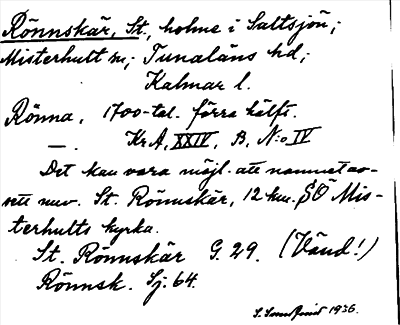 Rönnskär, St., holme i Saltsjön;
Misterhult sn; Tunaläns hd;
Kalmar l.
Rönna, 1700-tal. förra hälft.
—. Kr.A, XXIV, B, N:o IV
Det kan vara möjl. att namnet av-
sett nuv. St. Rönnskär, 12 km. SO Mis-
terhults kyrka.
St. Rönnskär G. 29. (Vänd!)
Rönnsk. Sj. 64.
1936.